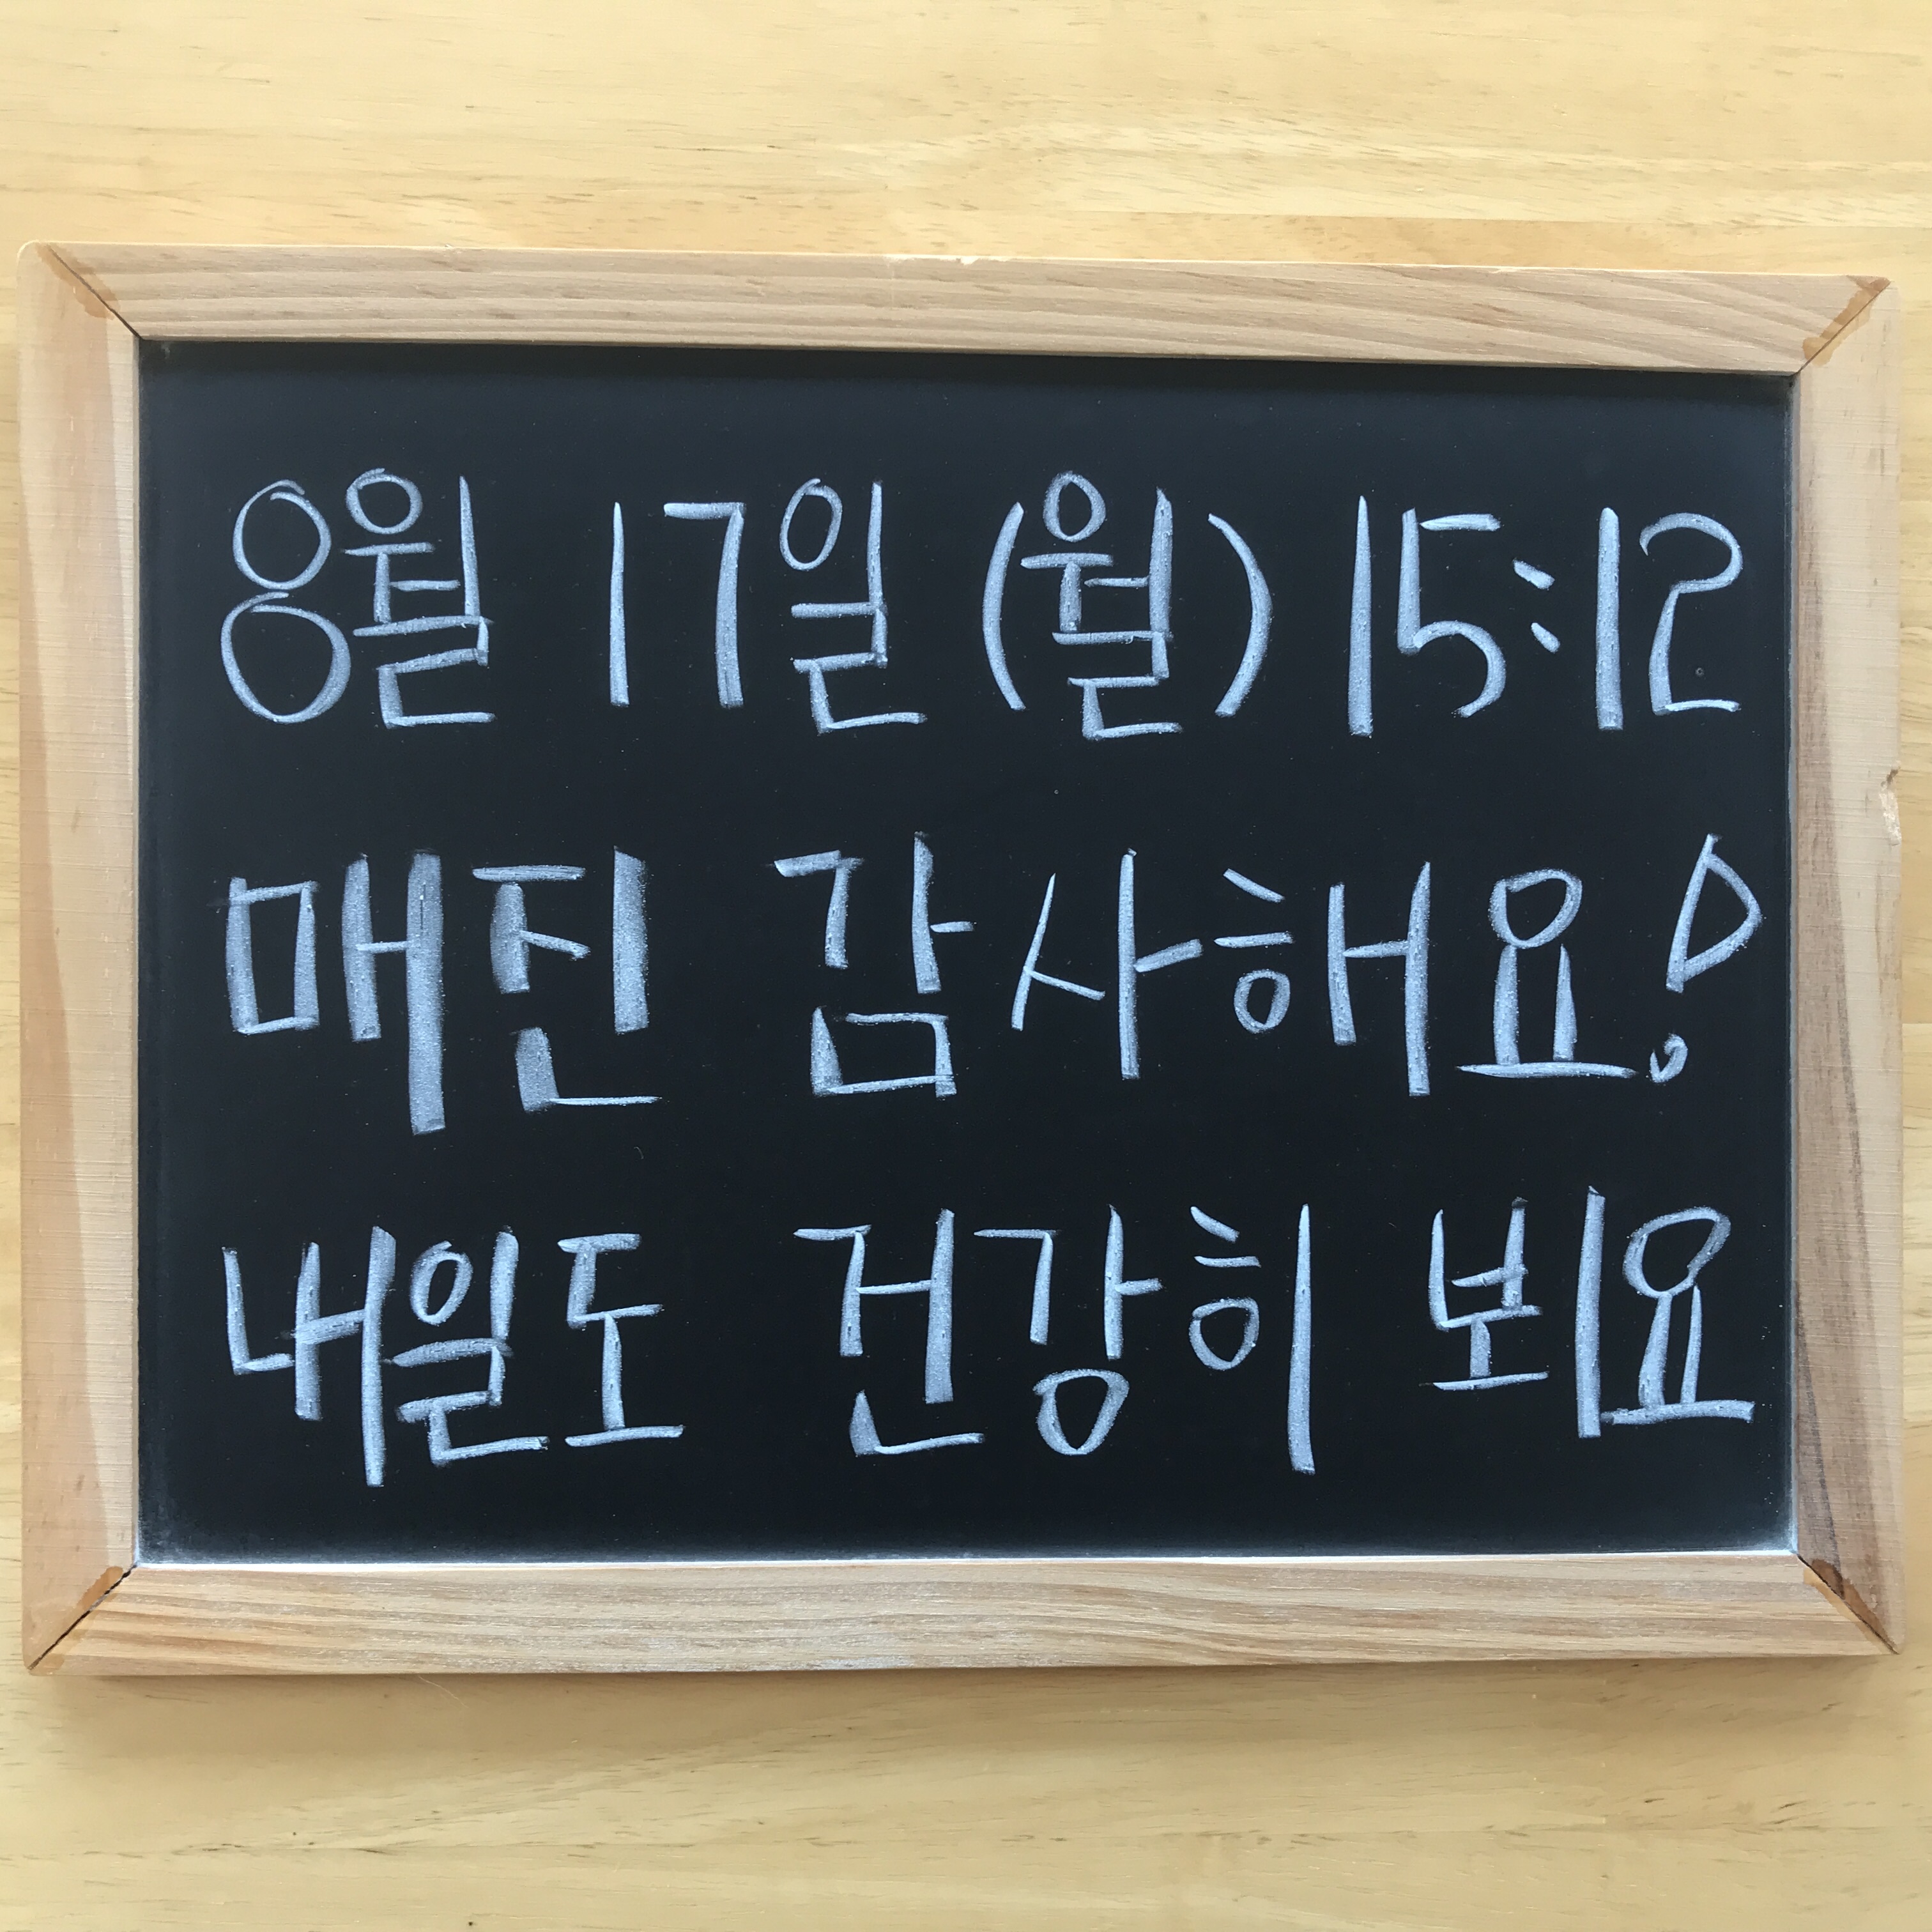 8월 17일 (월) 15:12
매진 감사해요!
내일도 건강히 뵈요